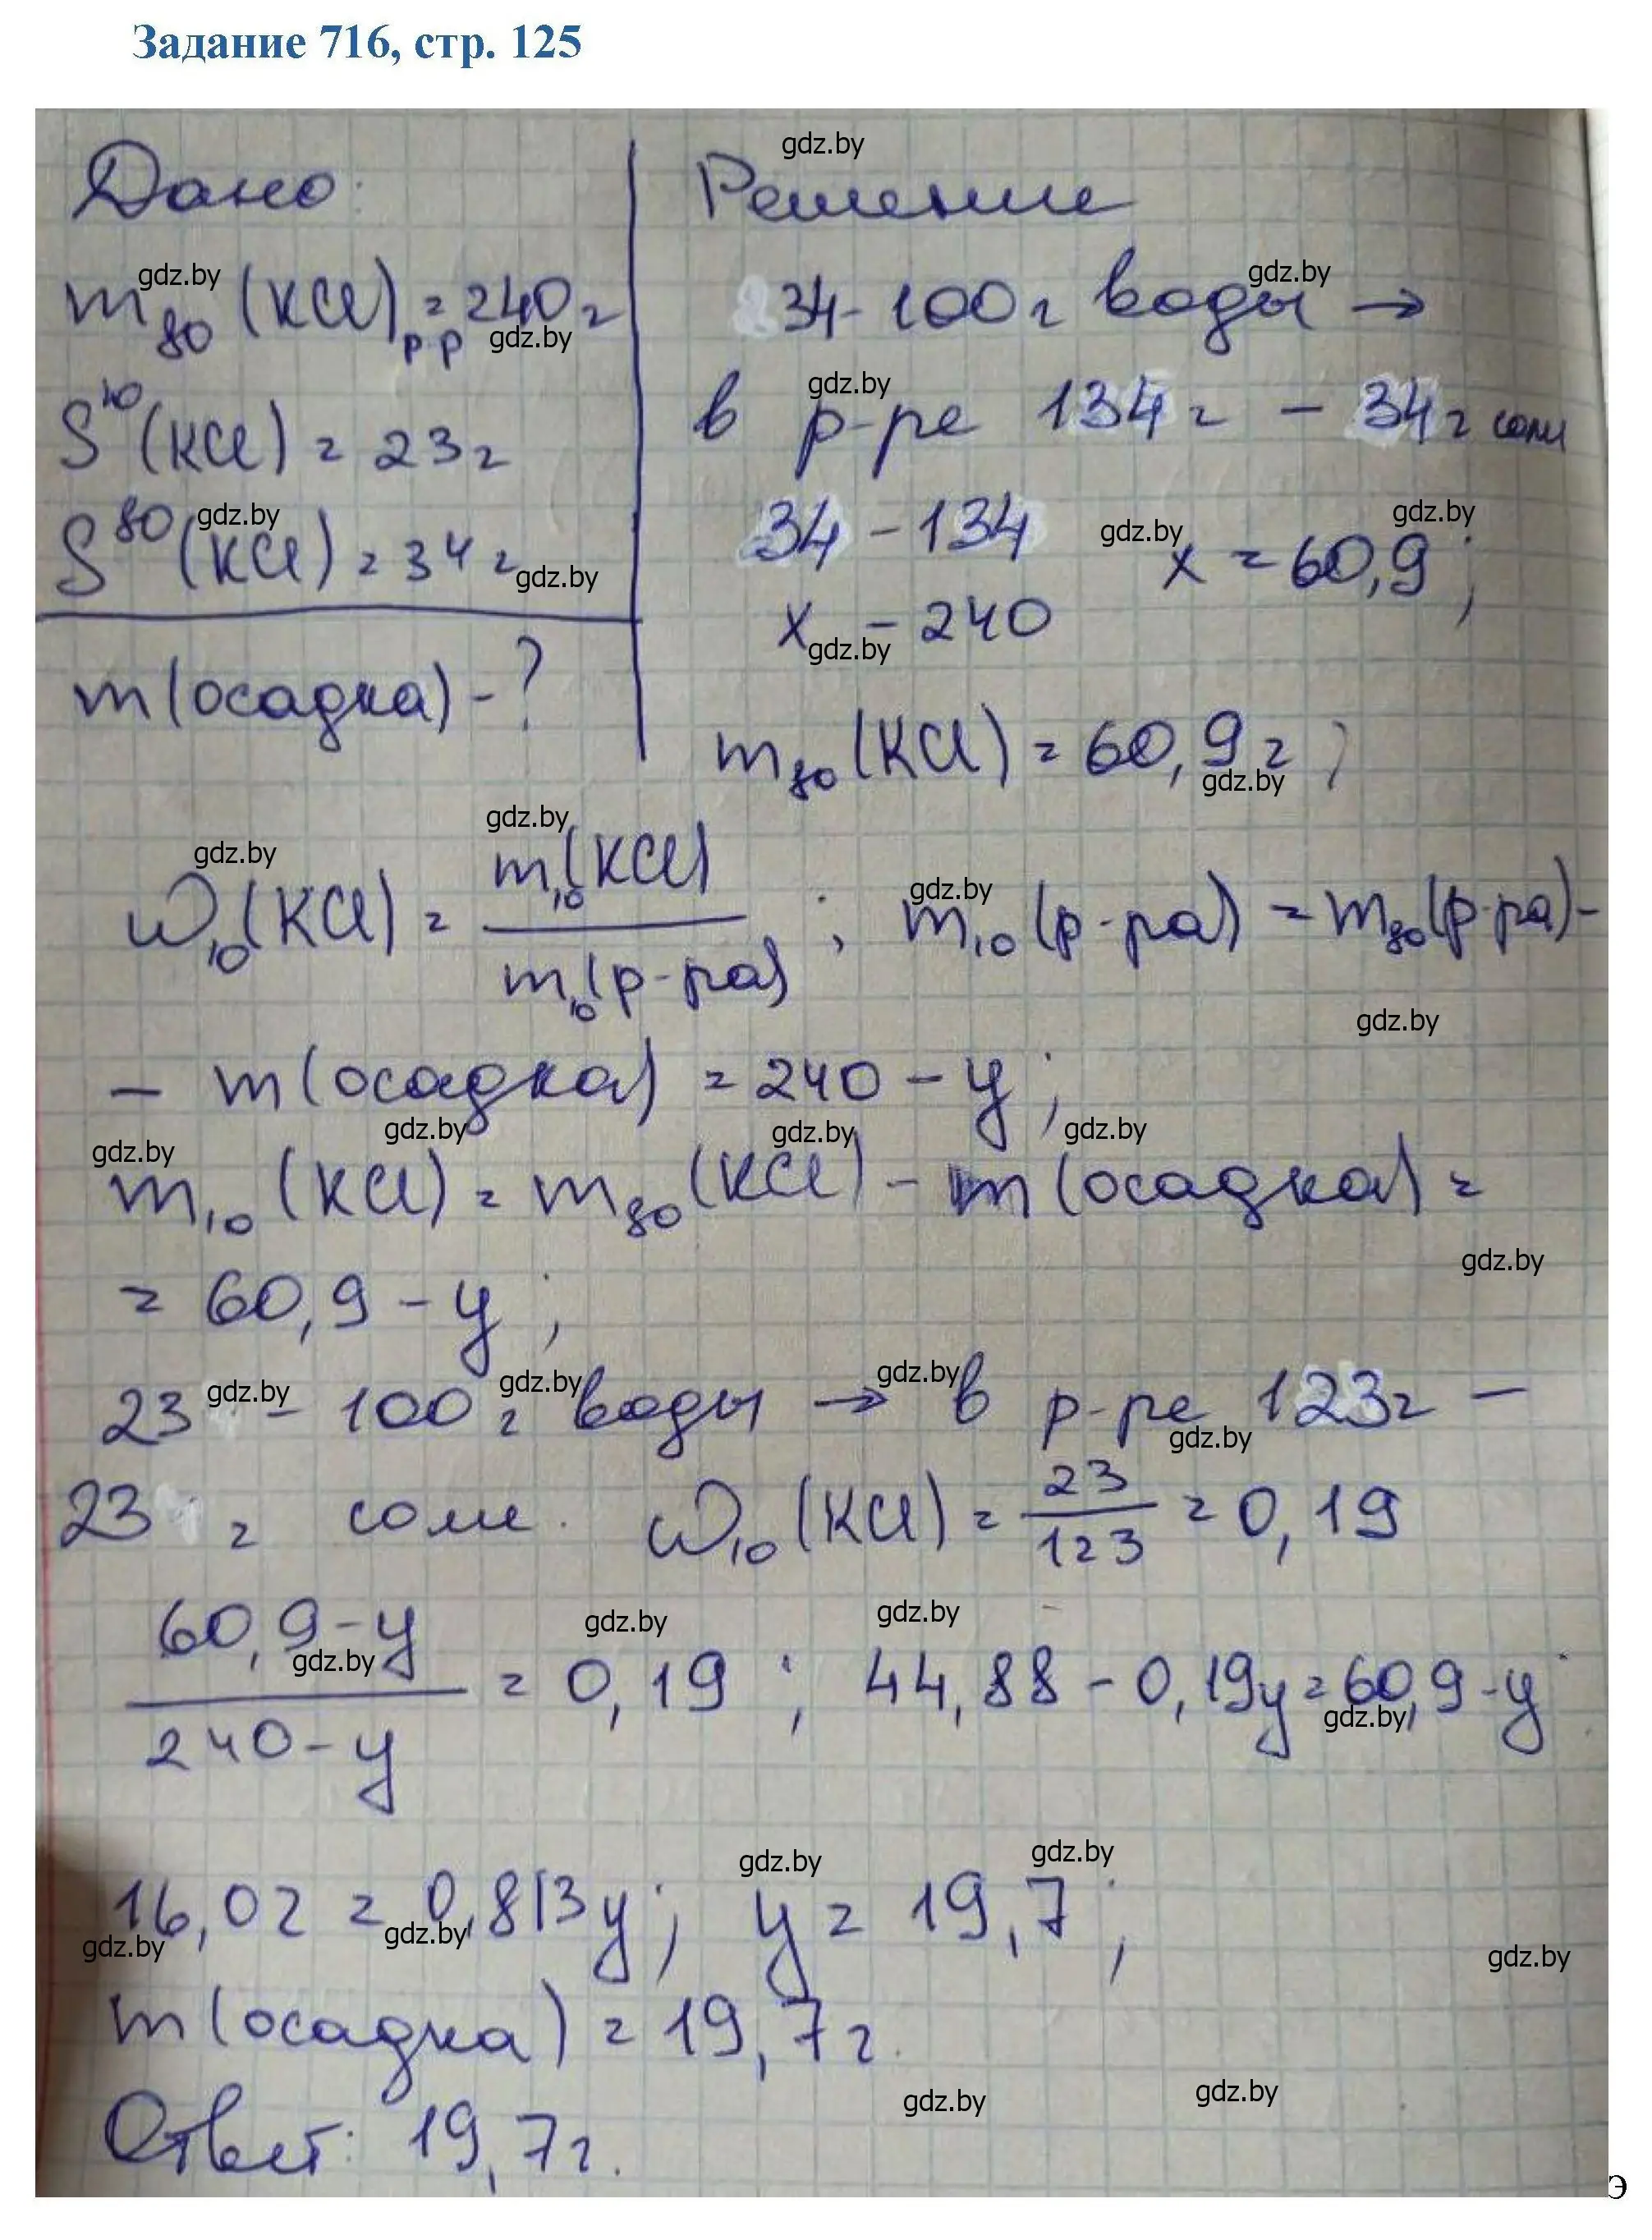 Задание 716, стр. 125
Дано:
m₈₀(KCl)р-р = 240 г
S¹⁰(KCl) = 23 г
S⁸⁰(KCl) = 34 г
m(осадка) - ?
Решение
34 - 100 г воды →
в р-ре 134 г - 34 г соли
34 - 134
x - 240
x = 60,9;
m₈₀(KCl) = 60,9 г;
ω₁₀(KCl) = m₁₀(KCl) / m₁₀(р-ра); m₁₀(р-ра) = m₈₀(р-ра) -
- m(осадка) = 240 - y;
m₁₀(KCl) = m₈₀(KCl) - m(осадка) =
= 60,9 - y;
23 - 100 г воды → в р-ре 123 г -
23 г соли. ω₁₀(KCl) = 23/123 = 0,19
(60,9 - y)/(240 - y) = 0,19; 44,88 - 0,19y = 60,9 - y
16,02 = 0,813y; y = 19,7;
m(осадка) = 19,7 г.
Ответ: 19,7 г.
gdz.by
э